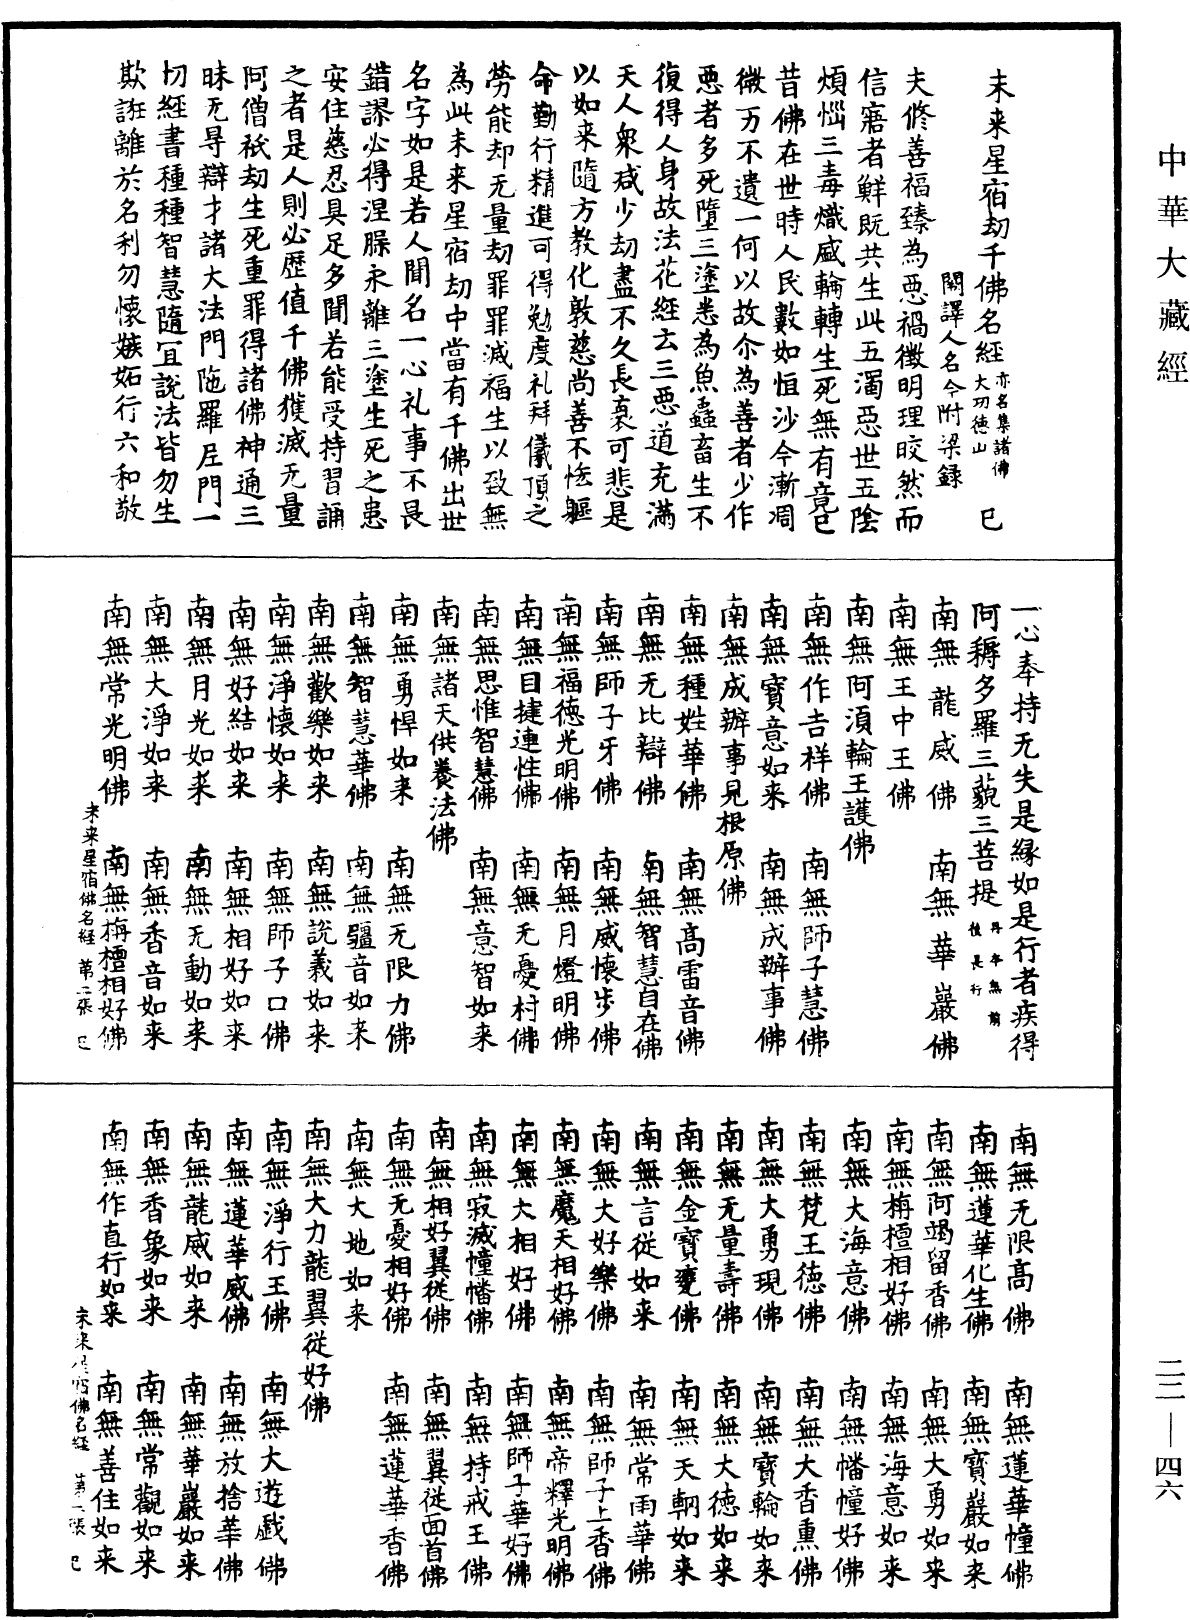 中華大藏經
未来星宿刧千佛名經 亦名集諸佛大功徳山 巳
闕譯人名今附梁録
夫修善福臻為惡禍徴明理晈然而
信寤者鮮既共生此五濁惡世五陰
煩惱三毒熾盛輪轉生死無有竟已
昔佛在世時人民數如恒沙今漸凋
微万不遺一何以故尒為善者少作
惡者多死墮三塗悉為魚蟲畜生不
復得人身故法花経云三惡道充滿
天人衆减少刧盡不久長衰可悲是
以如来隨方教化敦慈尚善不恡軀
命勤行精進可得勉度礼拜儀頂之
勞能却无量刧罪罪滅福生以致無
為此未来星宿刧中當有千佛出世
名字如是若人聞名一心礼事不㫮
錯謬必得涅槃永離三塗生死之患
安住慈忍具足多聞若能受持習誦
之者是人則必歴值千佛獲滅无量
阿僧祇刧生死重罪得諸佛神通三
昧无㝵辯才諸大法門陁羅尼門一
切経書種種智慧隨冝說法皆勿生
欺誑離於名利勿懷嫉妬行六和敬
一心奉持无失是縁如是行者疾得
阿耨多羅三藐三菩提
南無龍威佛 南無華巖佛
南無王中王佛
南無阿須輪王護佛
南無作吉祥佛 南無師子慧佛
南無寶意如来 南無成辦事佛
南無成辦事見根原佛
南無種姓華佛 南無髙雷音佛
南無无比辯佛 南無智慧自在佛
南無師子牙佛 南無威懷步佛
南無福徳光明佛 南無月燈明佛
南無目揵連性佛 南無无憂村佛
南無思惟智慧佛 南無意智如来
南無諸天供養法佛
南無勇悍如来 南無无限力佛
南無智慧華佛 南無疆音如来
南無歡樂如来 南無說義如来
南無淨懷如来 南無師子口佛
南無好結如来 南無相好如来
南無月光如来 南無无動如来
南無大淨如来 南無香音如来
南無常光明佛 南無栴檀相好佛
未来星宿佛名経 第二張 巳
南無无限髙佛 南無蓮華幢佛
南無蓮華化生佛 南無寶巖如来
南無阿竭留香佛 南無大勇如来
南無栴檀相好佛 南無海意如来
南無大海意佛 南無幡幢好佛
南無梵王徳佛 南無大香熏佛
南無大勇現佛 南無寶輪如来
南無无量壽佛 南無大徳如来
南無金寶甕佛 南無天輞如来
南無言従如来 南無常雨華佛
南無大好樂佛 南無師子上香佛
南無魔天相好佛 南無帝釋光明佛
南無大相好佛 南無師子華好佛
南無寂滅幢幡佛 南無持戒王佛
南無相好翼従佛 南無翼従面首佛
南無无憂相好佛 南無蓮華香佛
南無大地如来
南無大力龍翼従好佛
南無淨行王佛 南無大遊戲佛
南無蓮華威佛 南無放捨華佛
南無龍威如来 南無華巖如来
南無香象如来 南無常觀如来
南無作直行如来 南無善住如来
二二—四六